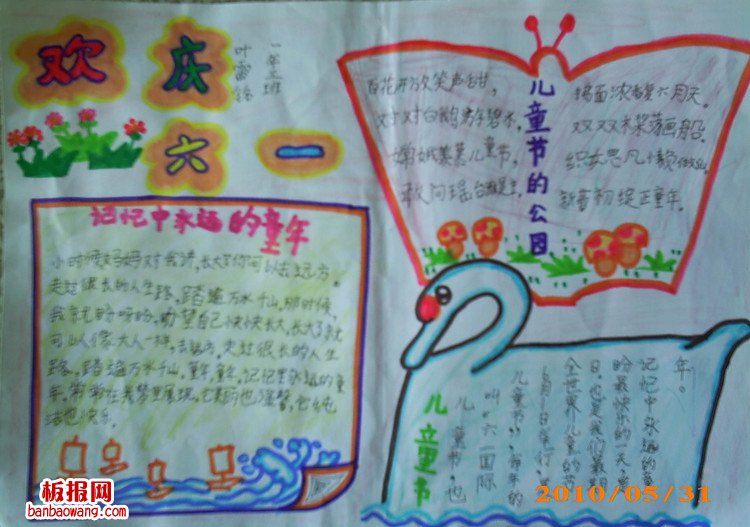 欢庆
六一
一年五班
叶雷
记忆中永远的童年
小时候妈妈对我讲,长大了你可以去远方。
走过很长的人生路,踏遍万水千山,那时候,
我就盼呀盼,盼望自己快快长大,长大了就
可以像大人一样,去远方,走过很长的人生
路,踏遍万水千山,童年,童年,记忆里永远的童
年,常常在我梦里展现,它
洁也快乐。
儿童节的公园
百花开放笑声甜,
对对白鹅
嫦娥羡慕儿童节,
敢问瑶台
扬面浓香六月天。
双双木桨荡画船。
织女思凡
新蕾初绽正童年。
儿童节
儿童节,也
叫“六一国际
儿童节”,每年的
6月1日举行,
全世界儿童的节
日,也是我们最期
盼最快乐的一天,是
记忆中永远的童
年。
2010/05/31
板报网
banbaowang.com